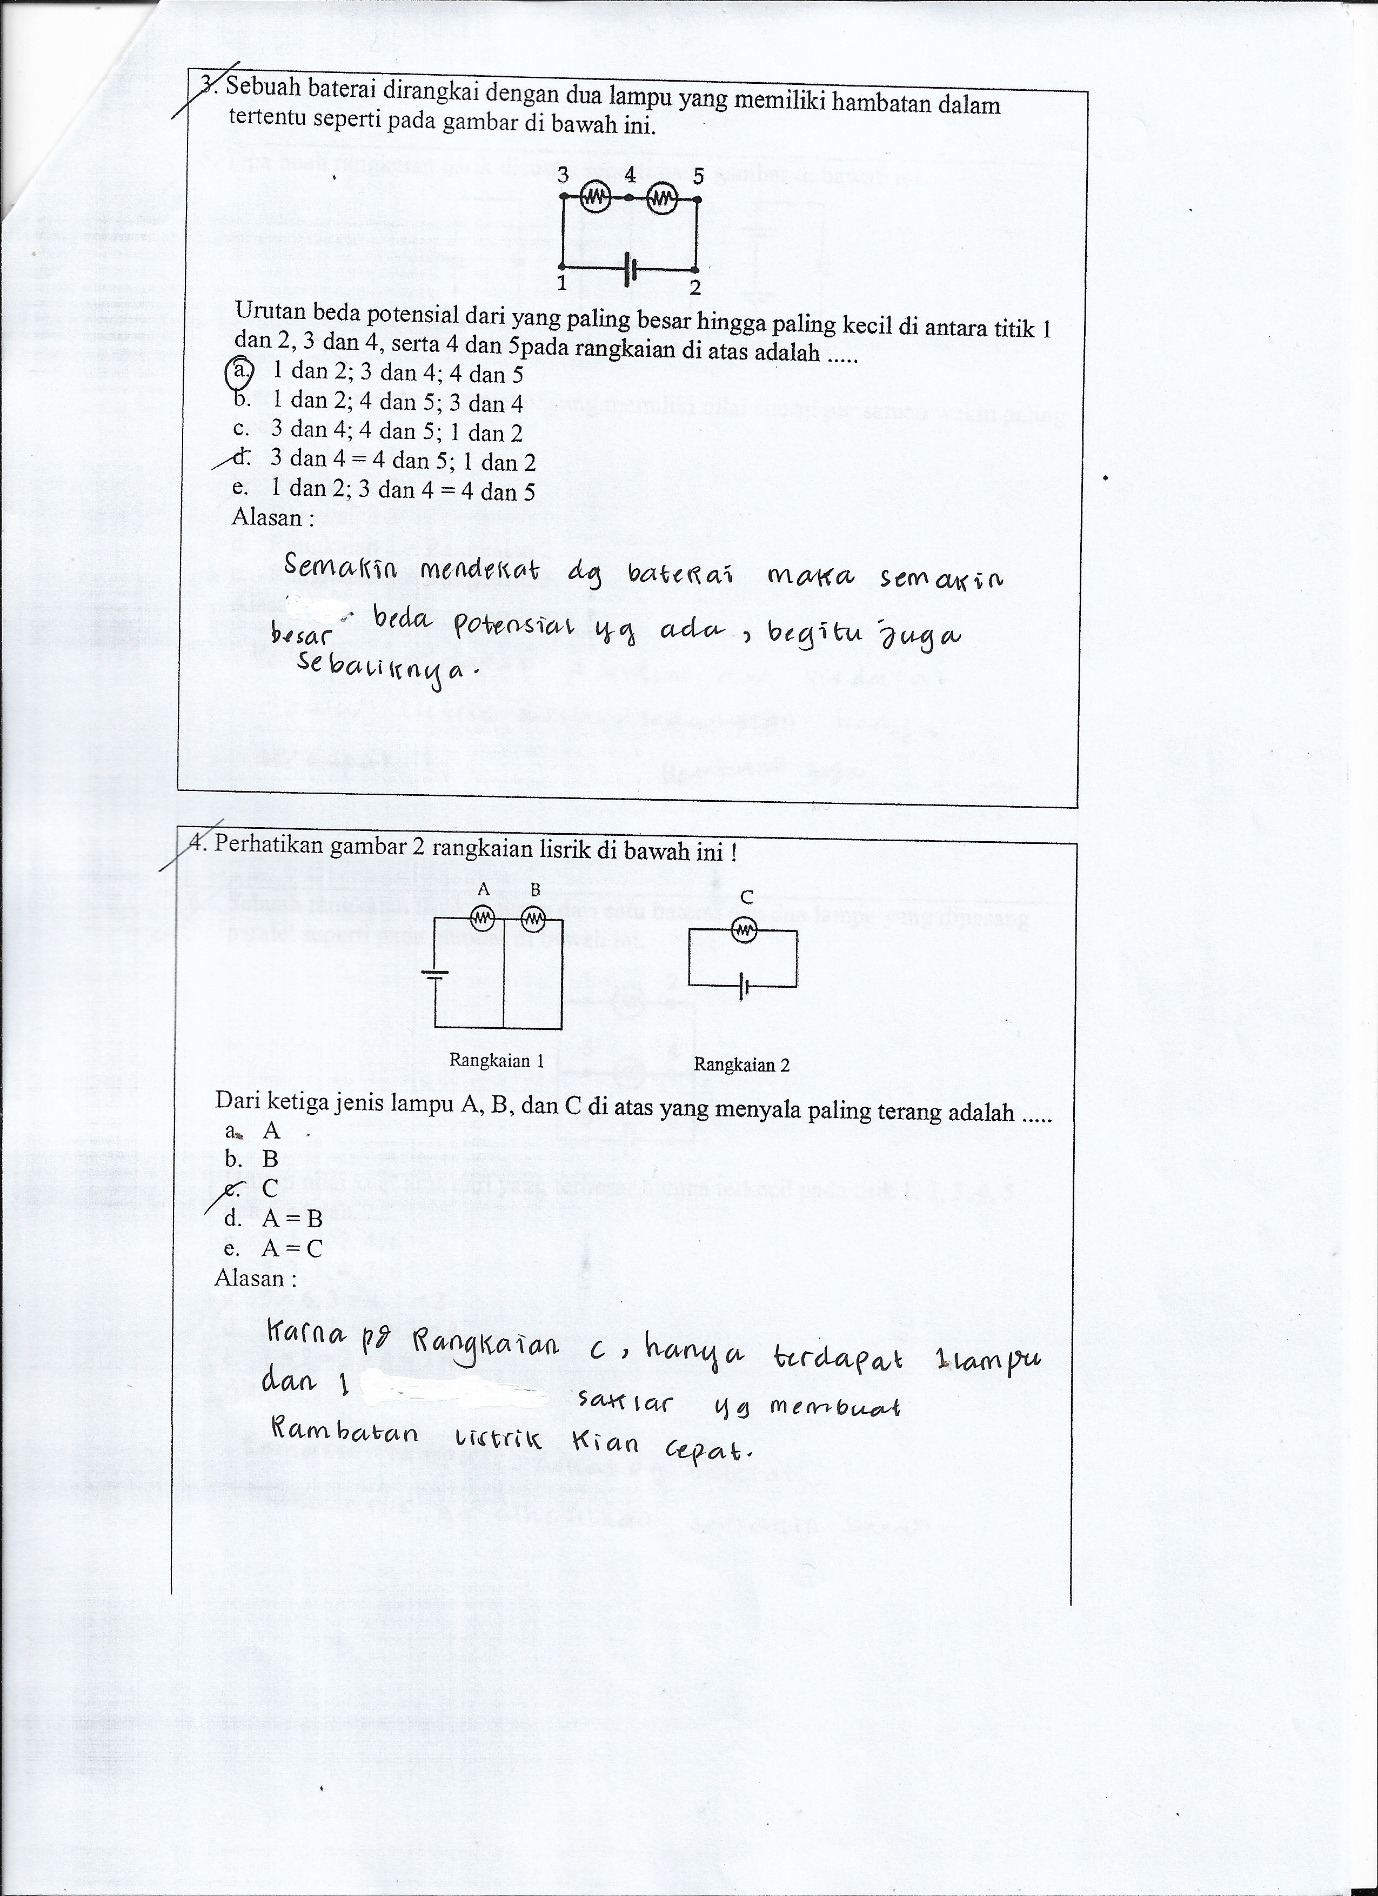 3. Sebuah baterai dirangkai dengan dua lampu yang memiliki hambatan dalam
tertentu seperti pada gambar di bawah ini.
3 4 5
1 2
Urutan beda potensial dari yang paling besar hingga paling kecil di antara titik 1
dan 2, 3 dan 4, serta 4 dan 5pada rangkaian di atas adalah .....
a. 1 dan 2; 3 dan 4; 4 dan 5
b. 1 dan 2; 4 dan 5; 3 dan 4
c. 3 dan 4; 4 dan 5; 1 dan 2
d. 3 dan 4 = 4 dan 5; 1 dan 2
e. 1 dan 2; 3 dan 4 = 4 dan 5
Alasan :
Semakin mendekat dg baterai maka semakin
besar beda potensial yg ada, begitu juga
sebaliknya.
4. Perhatikan gambar 2 rangkaian lisrik di bawah ini !
A B
C
Rangkaian 1 Rangkaian 2
Dari ketiga jenis lampu A, B, dan C di atas yang menyala paling terang adalah .....
a. A
b. B
c. C
d. A = B
e. A = C
Alasan :
Karna pd Rangkaian C, hanya terdapat 1 lampu
dan 1 saklar yg membuat
Rambatan listrik kian cepat.